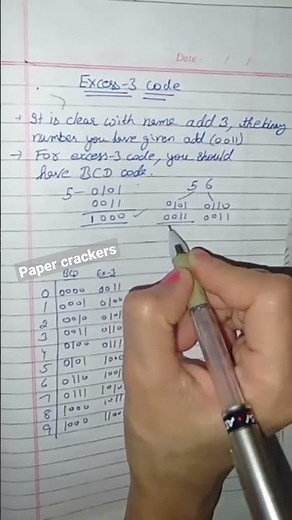 Date : / /
Excess-3 code
→ It is clear with name add 3, the binary
number you have given add (0011)
→ For excess-3 code, you should
have BCD code.
5 - 0101
0011
1000
5 6
0101 0110
0011 0011
Paper crackers
BCD Ex-3
0 0000 0011
1 0001 0100
2 0010
3 0011 0110
4 0100 0111
5 0101
6 0110
7 0111 1010
8 1000 1011
9 1000 1100